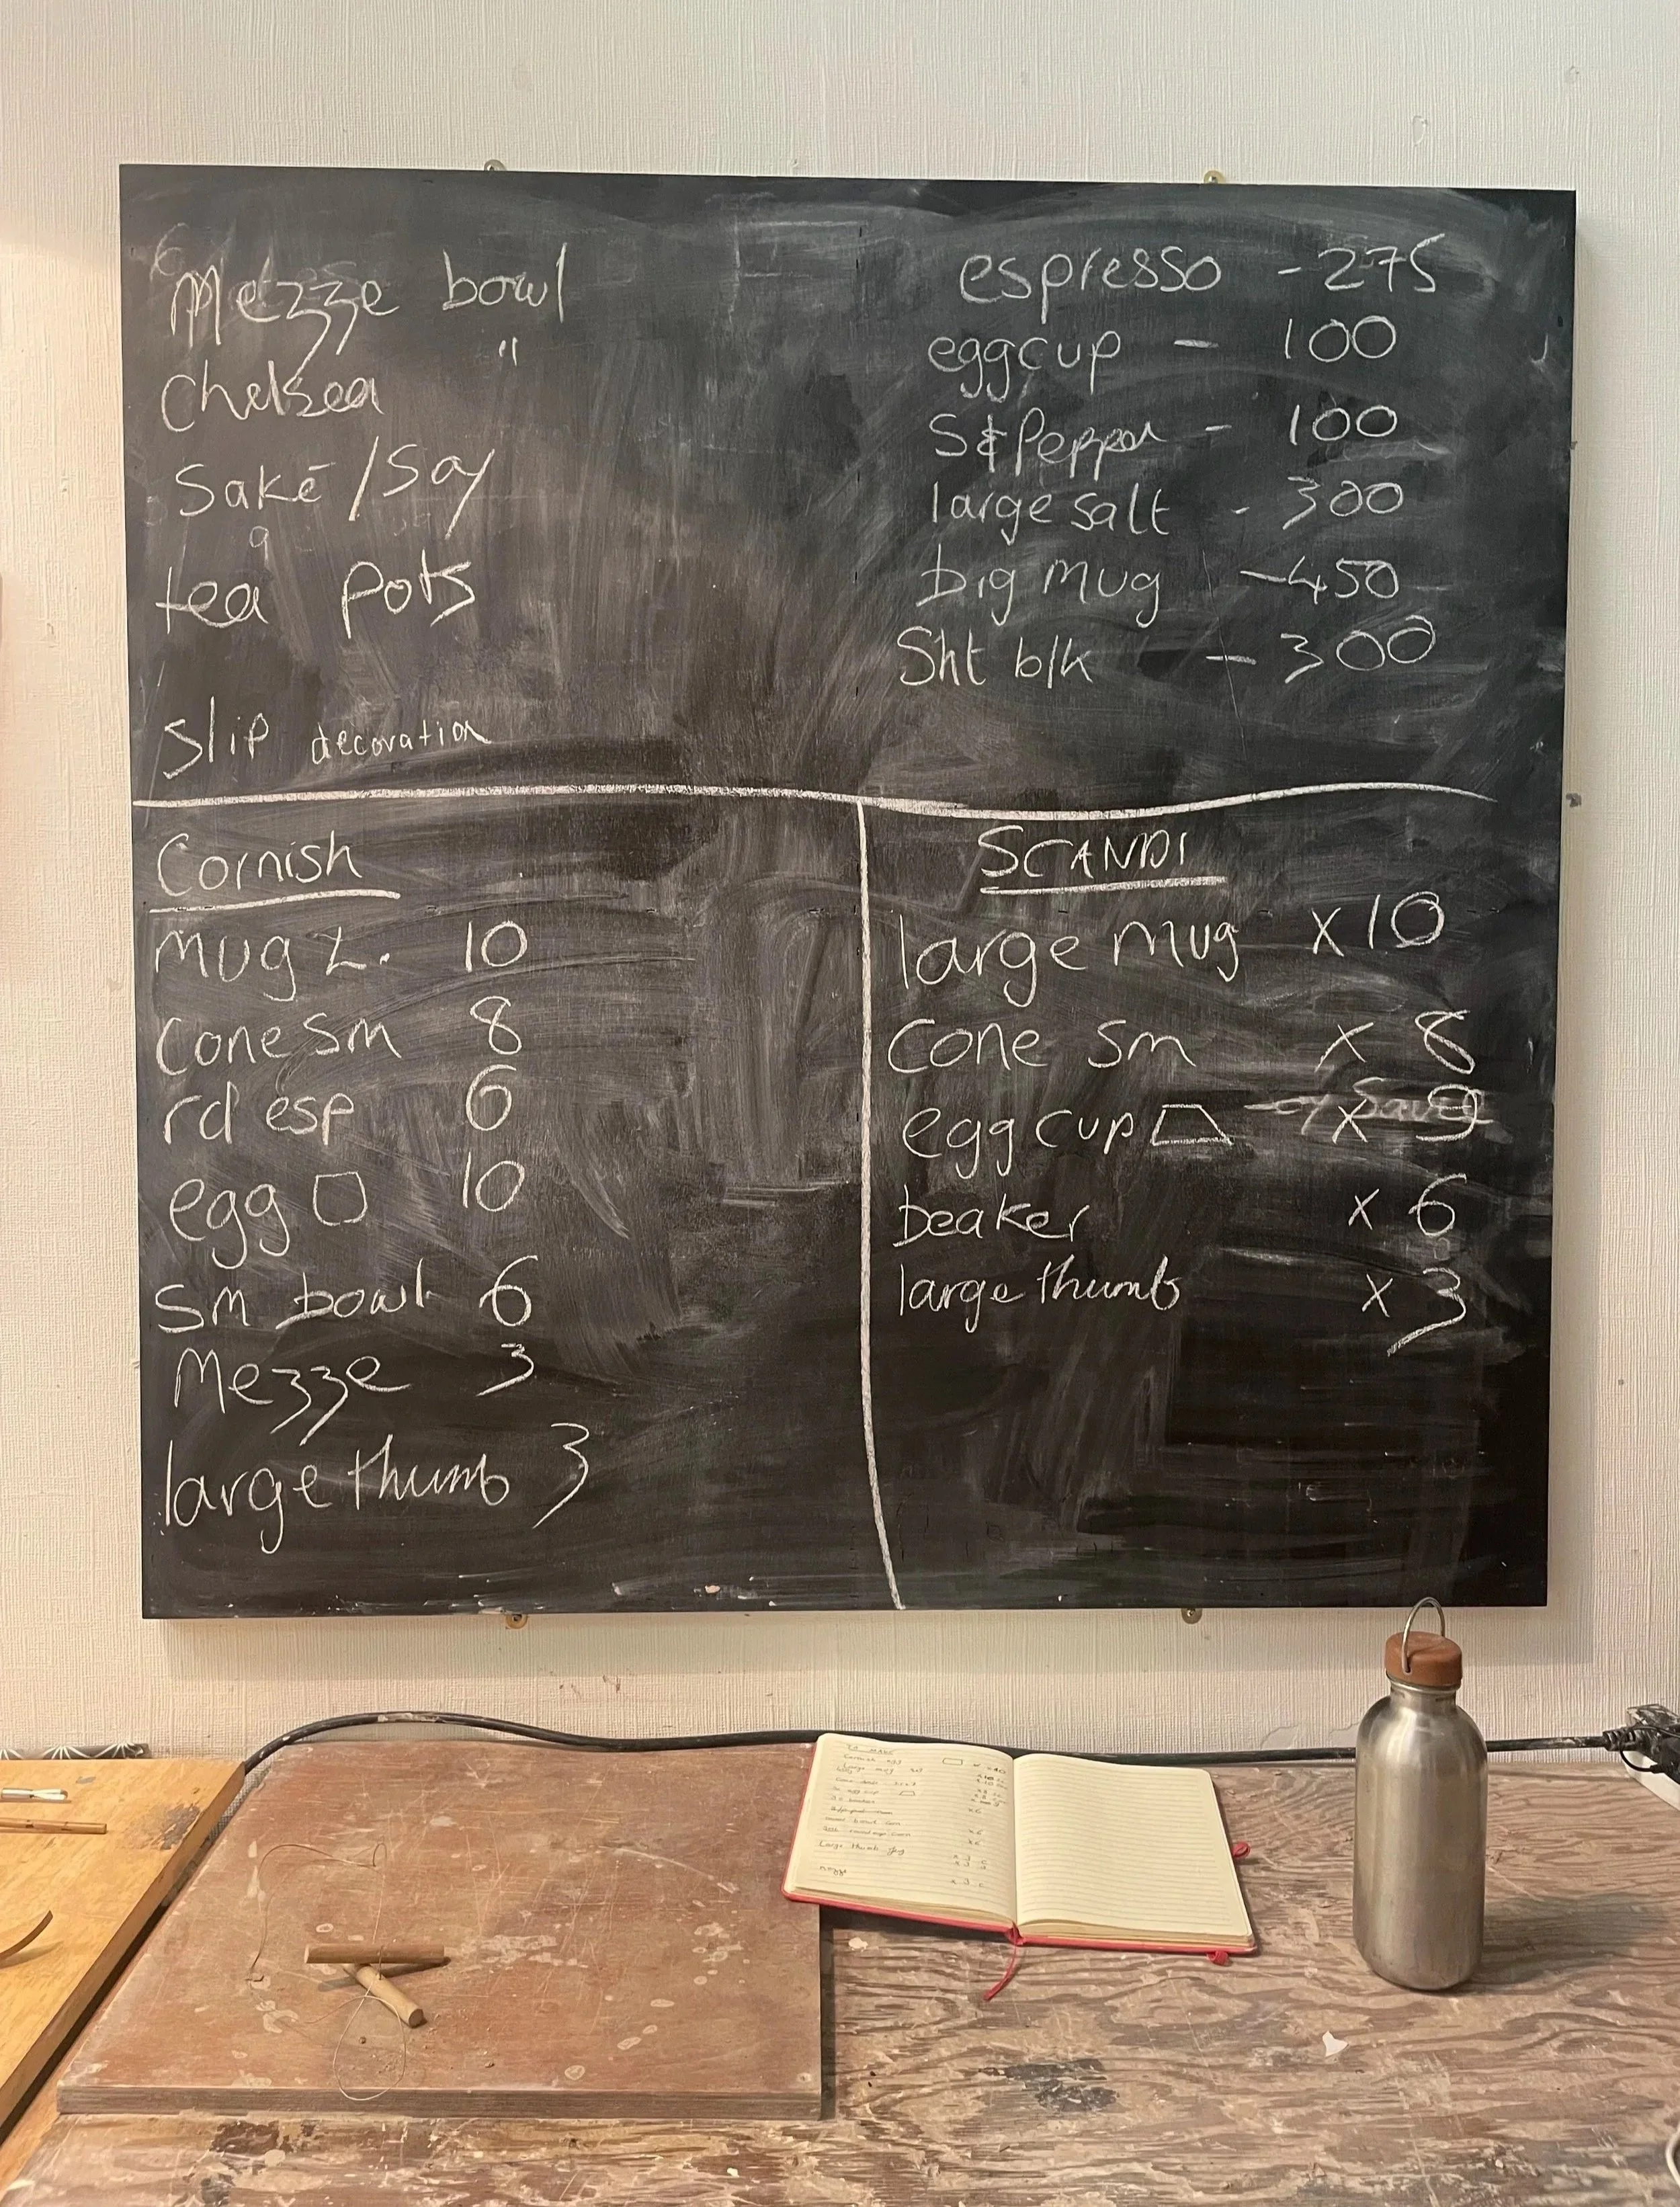 Mezze bowl
Chelsea "
Saké/Soy
tea pots
Slip decoration
espresso - 275
eggcup - 100
S&Pepper - 100
large salt - 300
big mug - 450
Sht blk - 300
Cornish
mug L. 10
Cone Sm 8
rd esp 6
egg 10
Sm bowl 6
Mezze 3
large thumb 3
SCANDI
large mug x 10
Cone sm x 8
egg cup x 9
beaker x 6
large thumb x 3